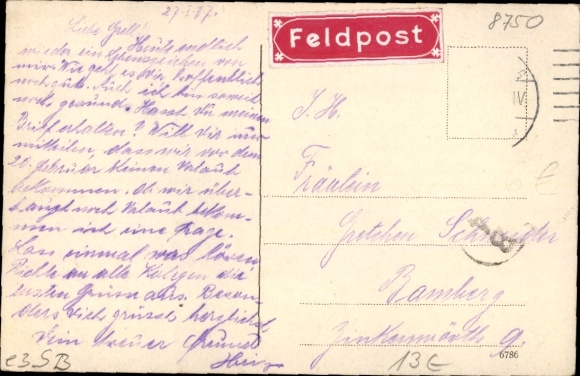 27.I.37.
Liebe Gretl!
Heute endlich
wieder ein Lebenszeichen von
mir. Wie geht es Dir, hoffentlich
noch gut. Auch ich bin soweit
noch gesund. Hasst Du meinen
Brief erhalten? Will Dir nur
mitteilen, dass wir vor dem
20. Februar keinen Urlaub
bekommen. Ob wir über-
haupt noch Urlaub bekom-
men ist eine Frage.
Lass einmal was hören.
Richte an alle die
besten Grüsse aus. Beson-
ders Dich grüsst herzlichst
Dein treuer Freund
Heinz
e3.SB
Feldpost
8750
IV
S. H.
Fräulein
Gretchen Schneider
Bamberg
Zinkenwörth 9.
13€
6786